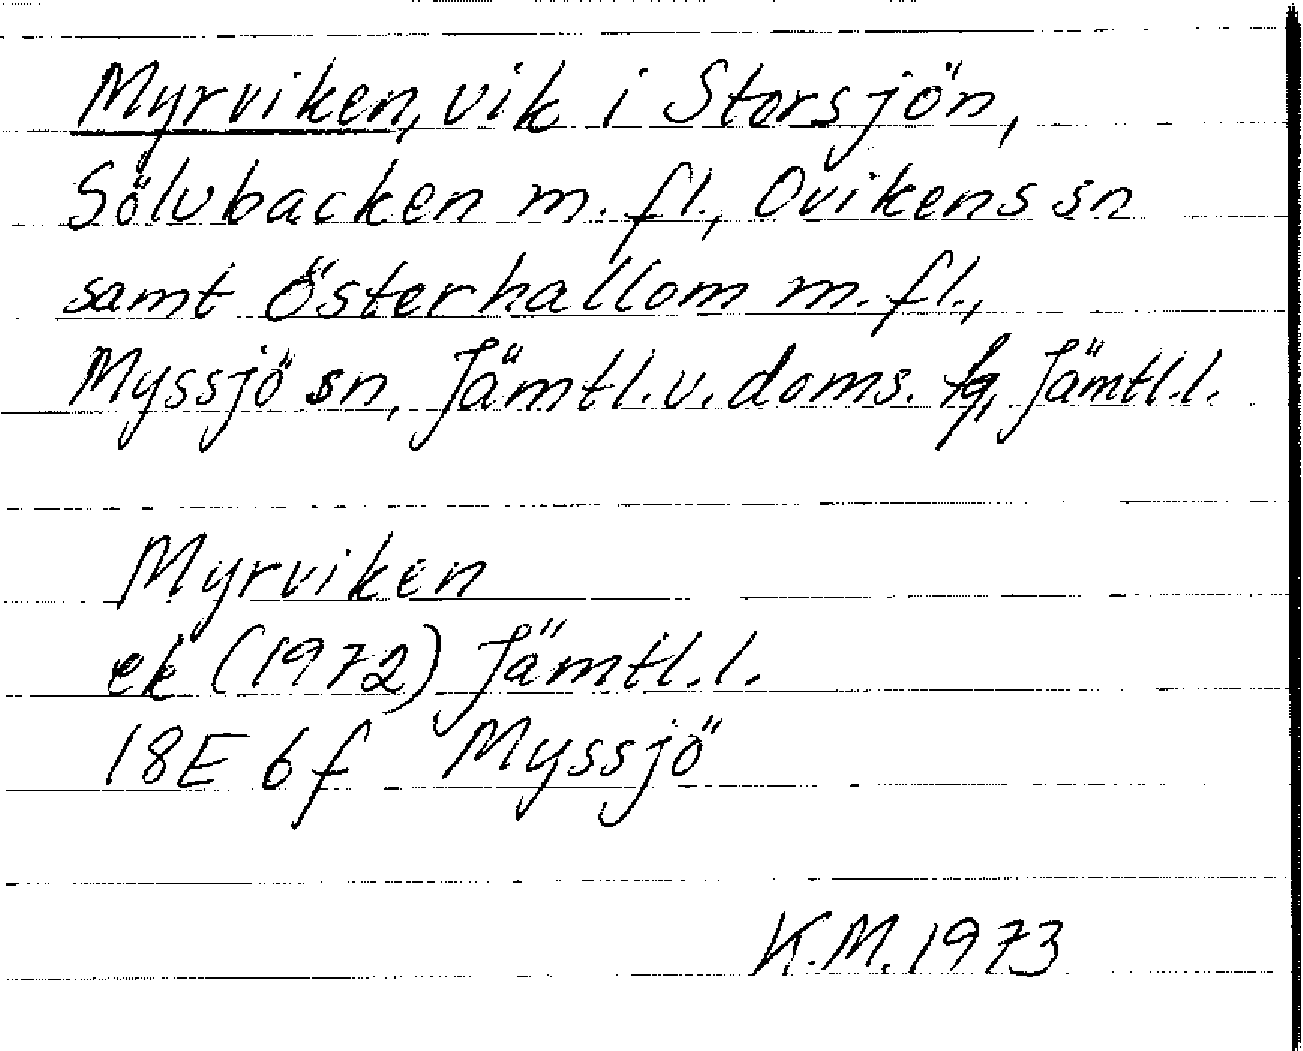 Myrviken, vik i Storsjön,
Sölvbacken m. fl., Ovikens sn
samt Österhallom m. fl.,
Myssjö sn, Jämtl. v. doms. fq, Jämtl. l.
Myrviken
ek (1972) Jämtl. l.
18E 6f Myssjö
K.M. 1973